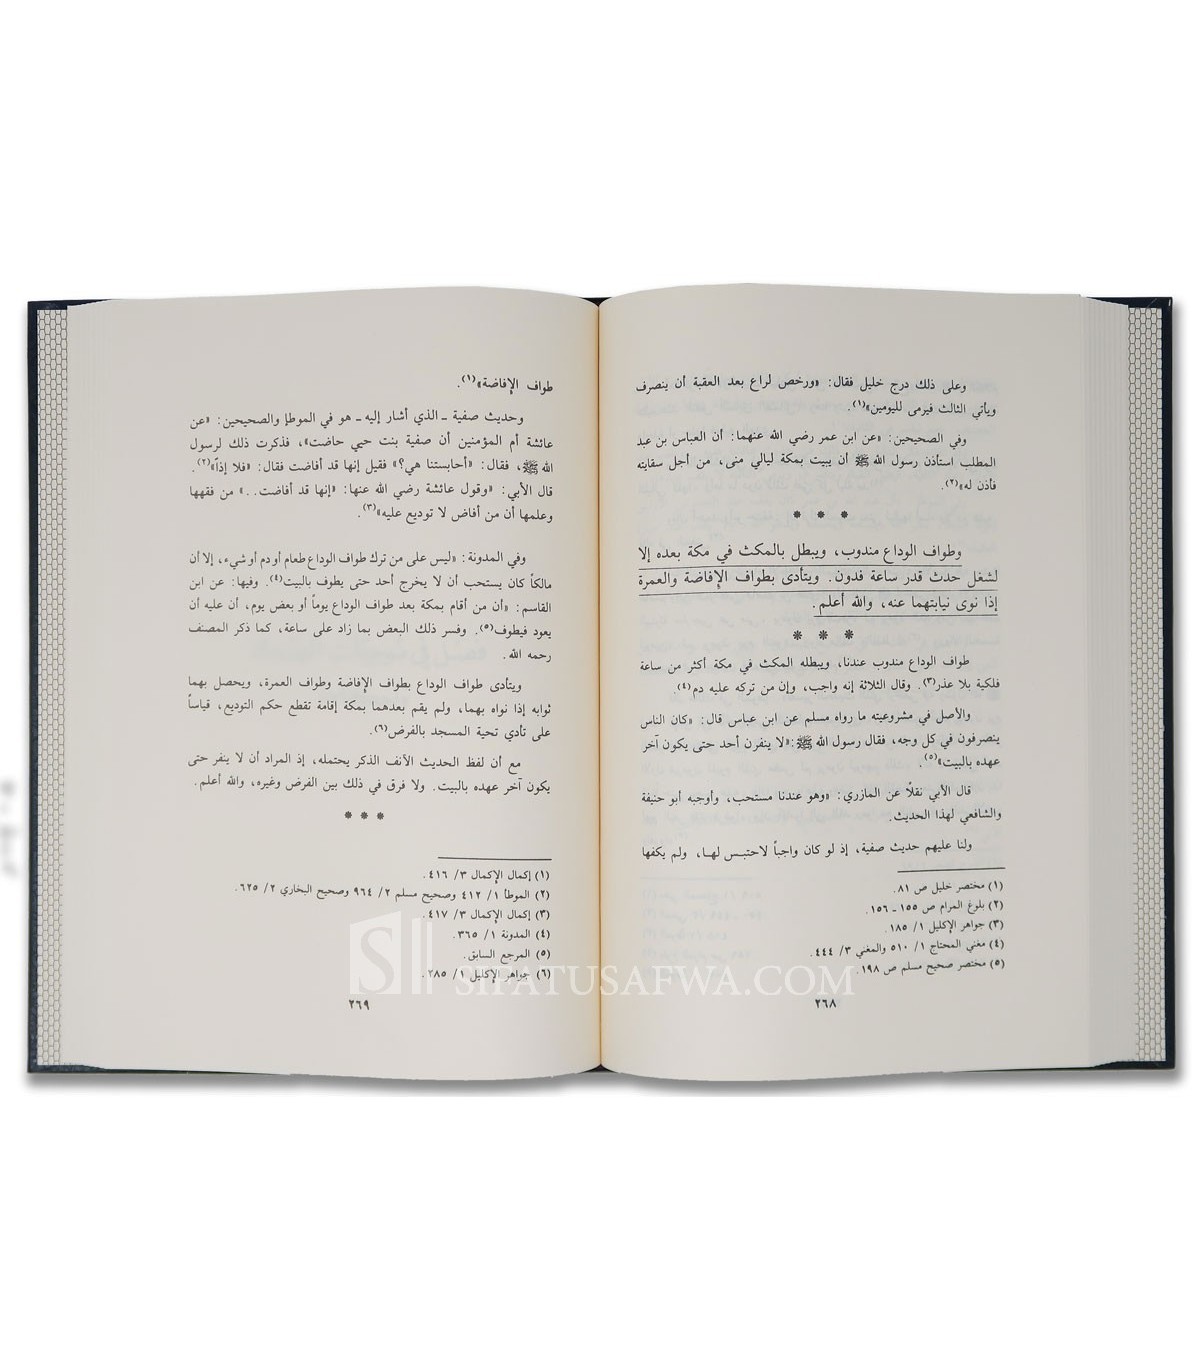 وعلى ذلك درج خليل فقال: «ورخص لراع بعد العقبة أن ينصرف
ويأتي الثالث فيرمى لليومين»(١).
وفي الصحيحين: «عن ابن عمر رضي الله عنهما: أن العباس بن عبد
المطلب استأذن رسول الله ﷺ أن يبيت بمكة ليالي منى، من أجل سقايته
فأذن له»(٢).
* * *
وطواف الوداع مندوب، ويبطل بالمكث في مكة بعده إلا
لشغل حدث قدر ساعة فدون. ويتأدى بطواف الإفاضة والعمرة
إذا نوى نيابتهما عنه، والله أعلم.
* * *
طواف الوداع مندوب عندنا، ويبطله المكث في مكة أكثر من ساعة
فلكية بلا عذر(٣). وقال الثلاثة إنه واجب، وإن من تركه عليه دم(٤).
والأصل في مشروعيته ما رواه مسلم عن ابن عباس قال: «كان الناس
ينصرفون في كل وجه، فقال رسول الله ﷺ:«لا ينفرن أحد حتى يكون آخر
عهده بالبيت»(٥).
قال الأبي نقلًا عن المازري: «وهو عندنا مستحب، وأوجبه أبو حنيفة
والشافعي لهذا الحديث.
ولنا عليهم حديث صفية، إذ لو كان واجباً لاحتبس لهـا، ولم يكفها
(١) مختصر خليل ص ٨١.
(٢) بلوغ المرام ص ١٥٥ ـ ١٥٦.
(٣) جواهر الإكليل ١/ ١٨٥.
(٤) مغني المحتاج ١/ ٥١٠ والمغني ٣/ ٤٤٤.
(٥) مختصر صحيح مسلم ص ١٩٨.
٢٦٨
طواف الإفاضة»(١).
وحديث صفية ـ الذي أشار إليه ـ هو في الموطإ والصحيحين: «عن
عائشة أم المؤمنين أن صفية بنت حيي حاضت»، فذكرت ذلك لرسول
الله ﷺ، فقال: «أحابستنا هي؟» فقيل إنها قد أفاضت فقال: «فلا إذاً»(٢).
قال الأبي: «وقول عائشة رضي الله عنها: «إنها قد أفاضت..» من فقهها
وعلمها أن من أفاض لا توديع عليه»(٣).
وفي المدونة: «ليس على من ترك طواف الوداع طعام أو دم أو شيء، إلا أن
مالكاً كان يستحب أن لا يخرج أحد حتى يطوف بالبيت(٤). وفيها: عن ابن
القاسم: «أن من أقام بمكة بعد طواف الوداع يوماً أو بعض يوم، أن عليه أن
يعود فيطوف(٥). وفسر ذلك البعض بما زاد على ساعة، كما ذكر المصنف
رحمه الله.
ويتأدى طواف الوداع بطواف الإفاضة وطواف العمرة، ويحصل بهما
ثوابه إذا نواه بهما، ولم يقم بعدهما بمكة إقامة تقطع حكم التوديع، قياساً
على تأدي تحية المسجد بالفرض(٦).
مع أن لفظ الحديث الآنف الذكر يحتمله، إذ المراد أن لا ينفر حتى
يكون آخر عهده بالبيت. ولا فرق في ذلك بين الفرض وغيره، والله أعلم.
* * *
(١) إكمال الإكمال ٣/ ٤١٦.
(٢) الموطأ ١/ ٤١٢ وصحيح مسلم ٢/ ٩٦٤ وصحيح البخاري ٢/ ٦٢٥.
(٣) إكمال الإكمال ٣/ ٤١٧.
(٤) المدونة ١/ ٣٦٥.
(٥) المرجع السابق.
(٦) جواهر الإكليل ١/ ٢٨٥.
٢٦٩
SIFATUSAFWA.COM